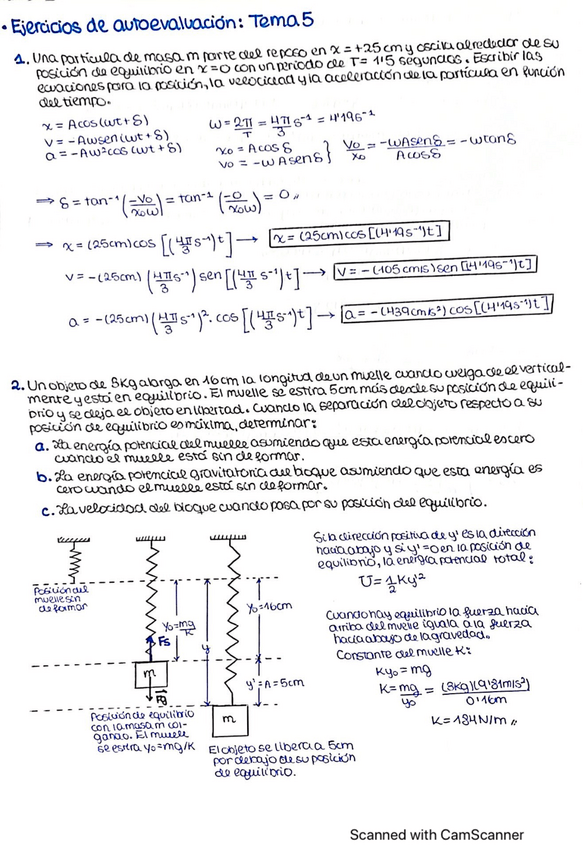 • Ejercicios de autoevaluación: Tema 5
1. Una partícula de masa m parte del reposo en x = +25 cm y oscila alrededor de su
posición de equilibrio en x = 0 con un periodo de T = 1'5 segundos. Escribir las
ecuaciones para la posición, la velocidad y la aceleración de la partícula en función
del tiempo.
x = A cos(ωt + δ)
v = -Aω sen(ωt + δ)
a = -Aω² cos(ωt + δ)
ω = 2π/T = 4π/3 s⁻¹ = 4'19 s⁻¹
x₀ = A cos δ
v₀ = -ωA sen δ } v₀/x₀ = -ωA sen δ / A cos δ = -ω tan δ
⇒ δ = tan⁻¹(-v₀/x₀ω) = tan⁻¹(-0/x₀ω) = 0 //
⇒ x = (25cm) cos[(4π/3 s⁻¹)t] → x = (25cm) cos[(4'19 s⁻¹)t]
v = -(25cm)(4π/3 s⁻¹) sen[(4π/3 s⁻¹)t] → v = -(105 cm/s) sen[(4'19 s⁻¹)t]
a = -(25cm)(4π/3 s⁻¹)². cos[(4π/3 s⁻¹)t] → a = -(439 cm/s²) cos[(4'19 s⁻¹)t]
2. Un objeto de 3kg alarga en 16 cm la longitud de un muelle cuando cuelga de el vertical-
mente y está en equilibrio. El muelle se estira 5cm más desde su posición de equili-
brio y se deja el objeto en libertad. Cuando la separación del objeto respecto a su
posición de equilibrio es máxima, determinar:
a. La energía potencial del muelle asumiendo que esta energía potencial es cero
cuando el muelle está sin deformar.
b. La energía potencial gravitatoria del bloque asumiendo que esta energía es
cero cuando el muelle está sin deformar.
c. La velocidad del bloque cuando pasa por su posición del equilibrio.
Posición del
muelle sin
deformar
y₀ = mg/K
Fs
m
Fg
Posición de equilibrio
con la masa m col-
gando. El muelle
se estira y₀ = mg/K
y
y₀ = 16cm
y' = A = 5cm
m
El objeto se libera a 5cm
por debajo de su posición
de equilibrio.
Si la dirección positiva de y' es la dirección
hacia abajo y si y' = 0 en la posición de
equilibrio, la energía potencial total:
U = 1/2 Ky'²
Cuando hay equilibrio la fuerza hacia
arriba del muelle iguala a la fuerza
hacia abajo de la gravedad.
Constante del muelle K:
Ky₀ = mg
K = mg/y₀ = (3kg)(9'81m/s²)/0'16m
K = 184 N/m //
Scanned with CamScanner